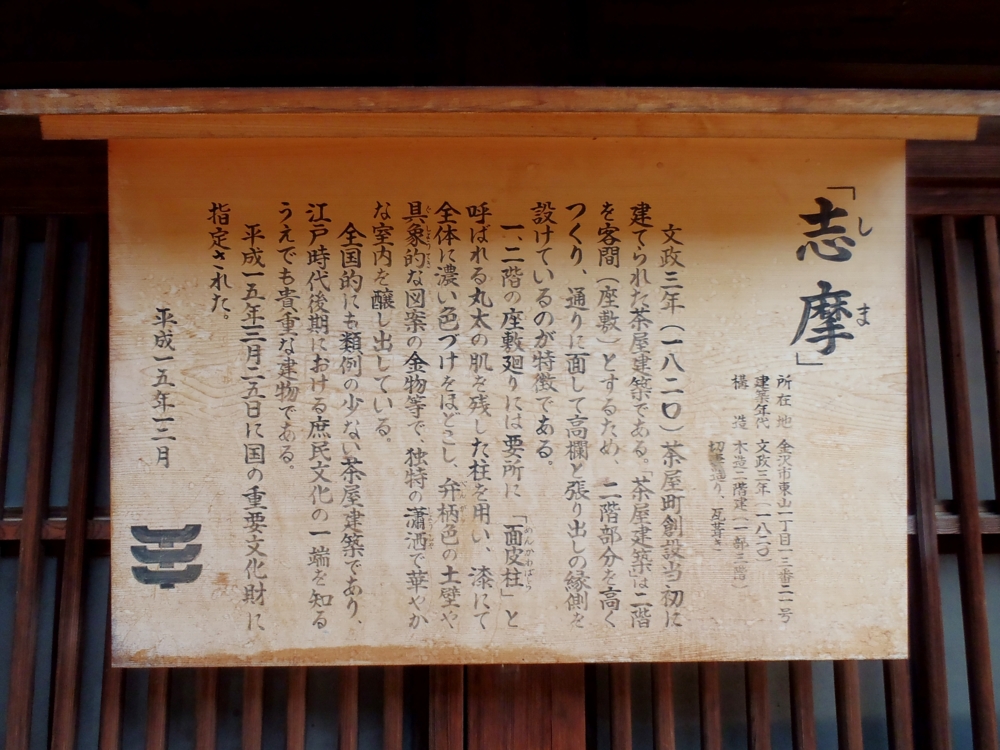 「志摩」
しま
所在地 金沢市東山一丁目一三番二一号
建築年代 文政三年(一八二〇)
構造 木造二階建(一部三階)
切妻造り、瓦葺き
文政三年(一八二〇)茶屋町創設当初に
建てられた茶屋建築である。「茶屋建築」は二階
を客間(座敷)とするため、二階部分を高く
つくり、通りに面して高欄と張り出しの縁側を
設けているのが特徴である。
一、二階の座敷廻りには要所に「面皮柱」と
めんかわばしら
呼ばれる丸太の肌を残した柱を用い、漆にて
全体に濃い色づけをほどこし、弁柄色の土壁や
具象的な図案の金物等で、独特の瀟洒で華やか
な室内を醸し出している。
全国的にも類例の少ない茶屋建築であり、
江戸時代後期における庶民文化の一端を知る
うえでも貴重な建物である。
平成一五年一二月二五日に国の重要文化財に
指定された。
平成一五年一二月